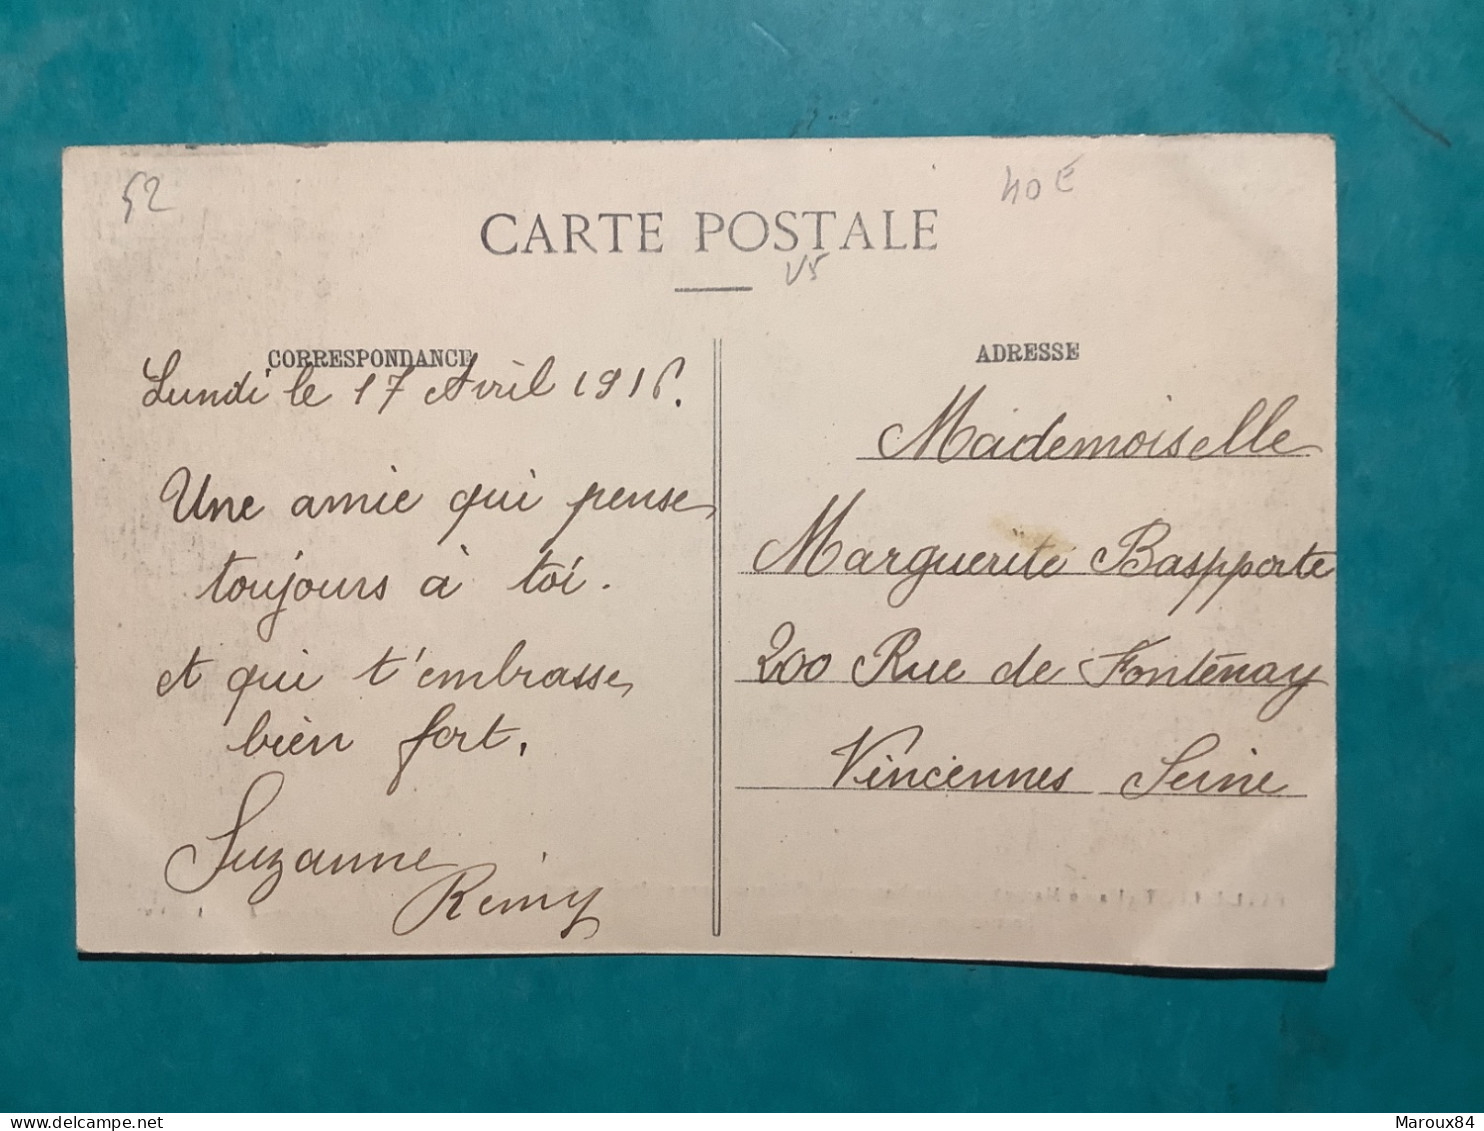 52
40€
CARTE POSTALE
V5
CORRESPONDANCE
Lundi le 17 Avril 1916.
Une amie qui pense
toujours à toi.
et qui t'embrasse
bien fort.
Suzanne
Rémy
ADRESSE
Mademoiselle
Marguerite Baspporte
200 Rue de Fontenay
Vincennes Seine
Maroux84